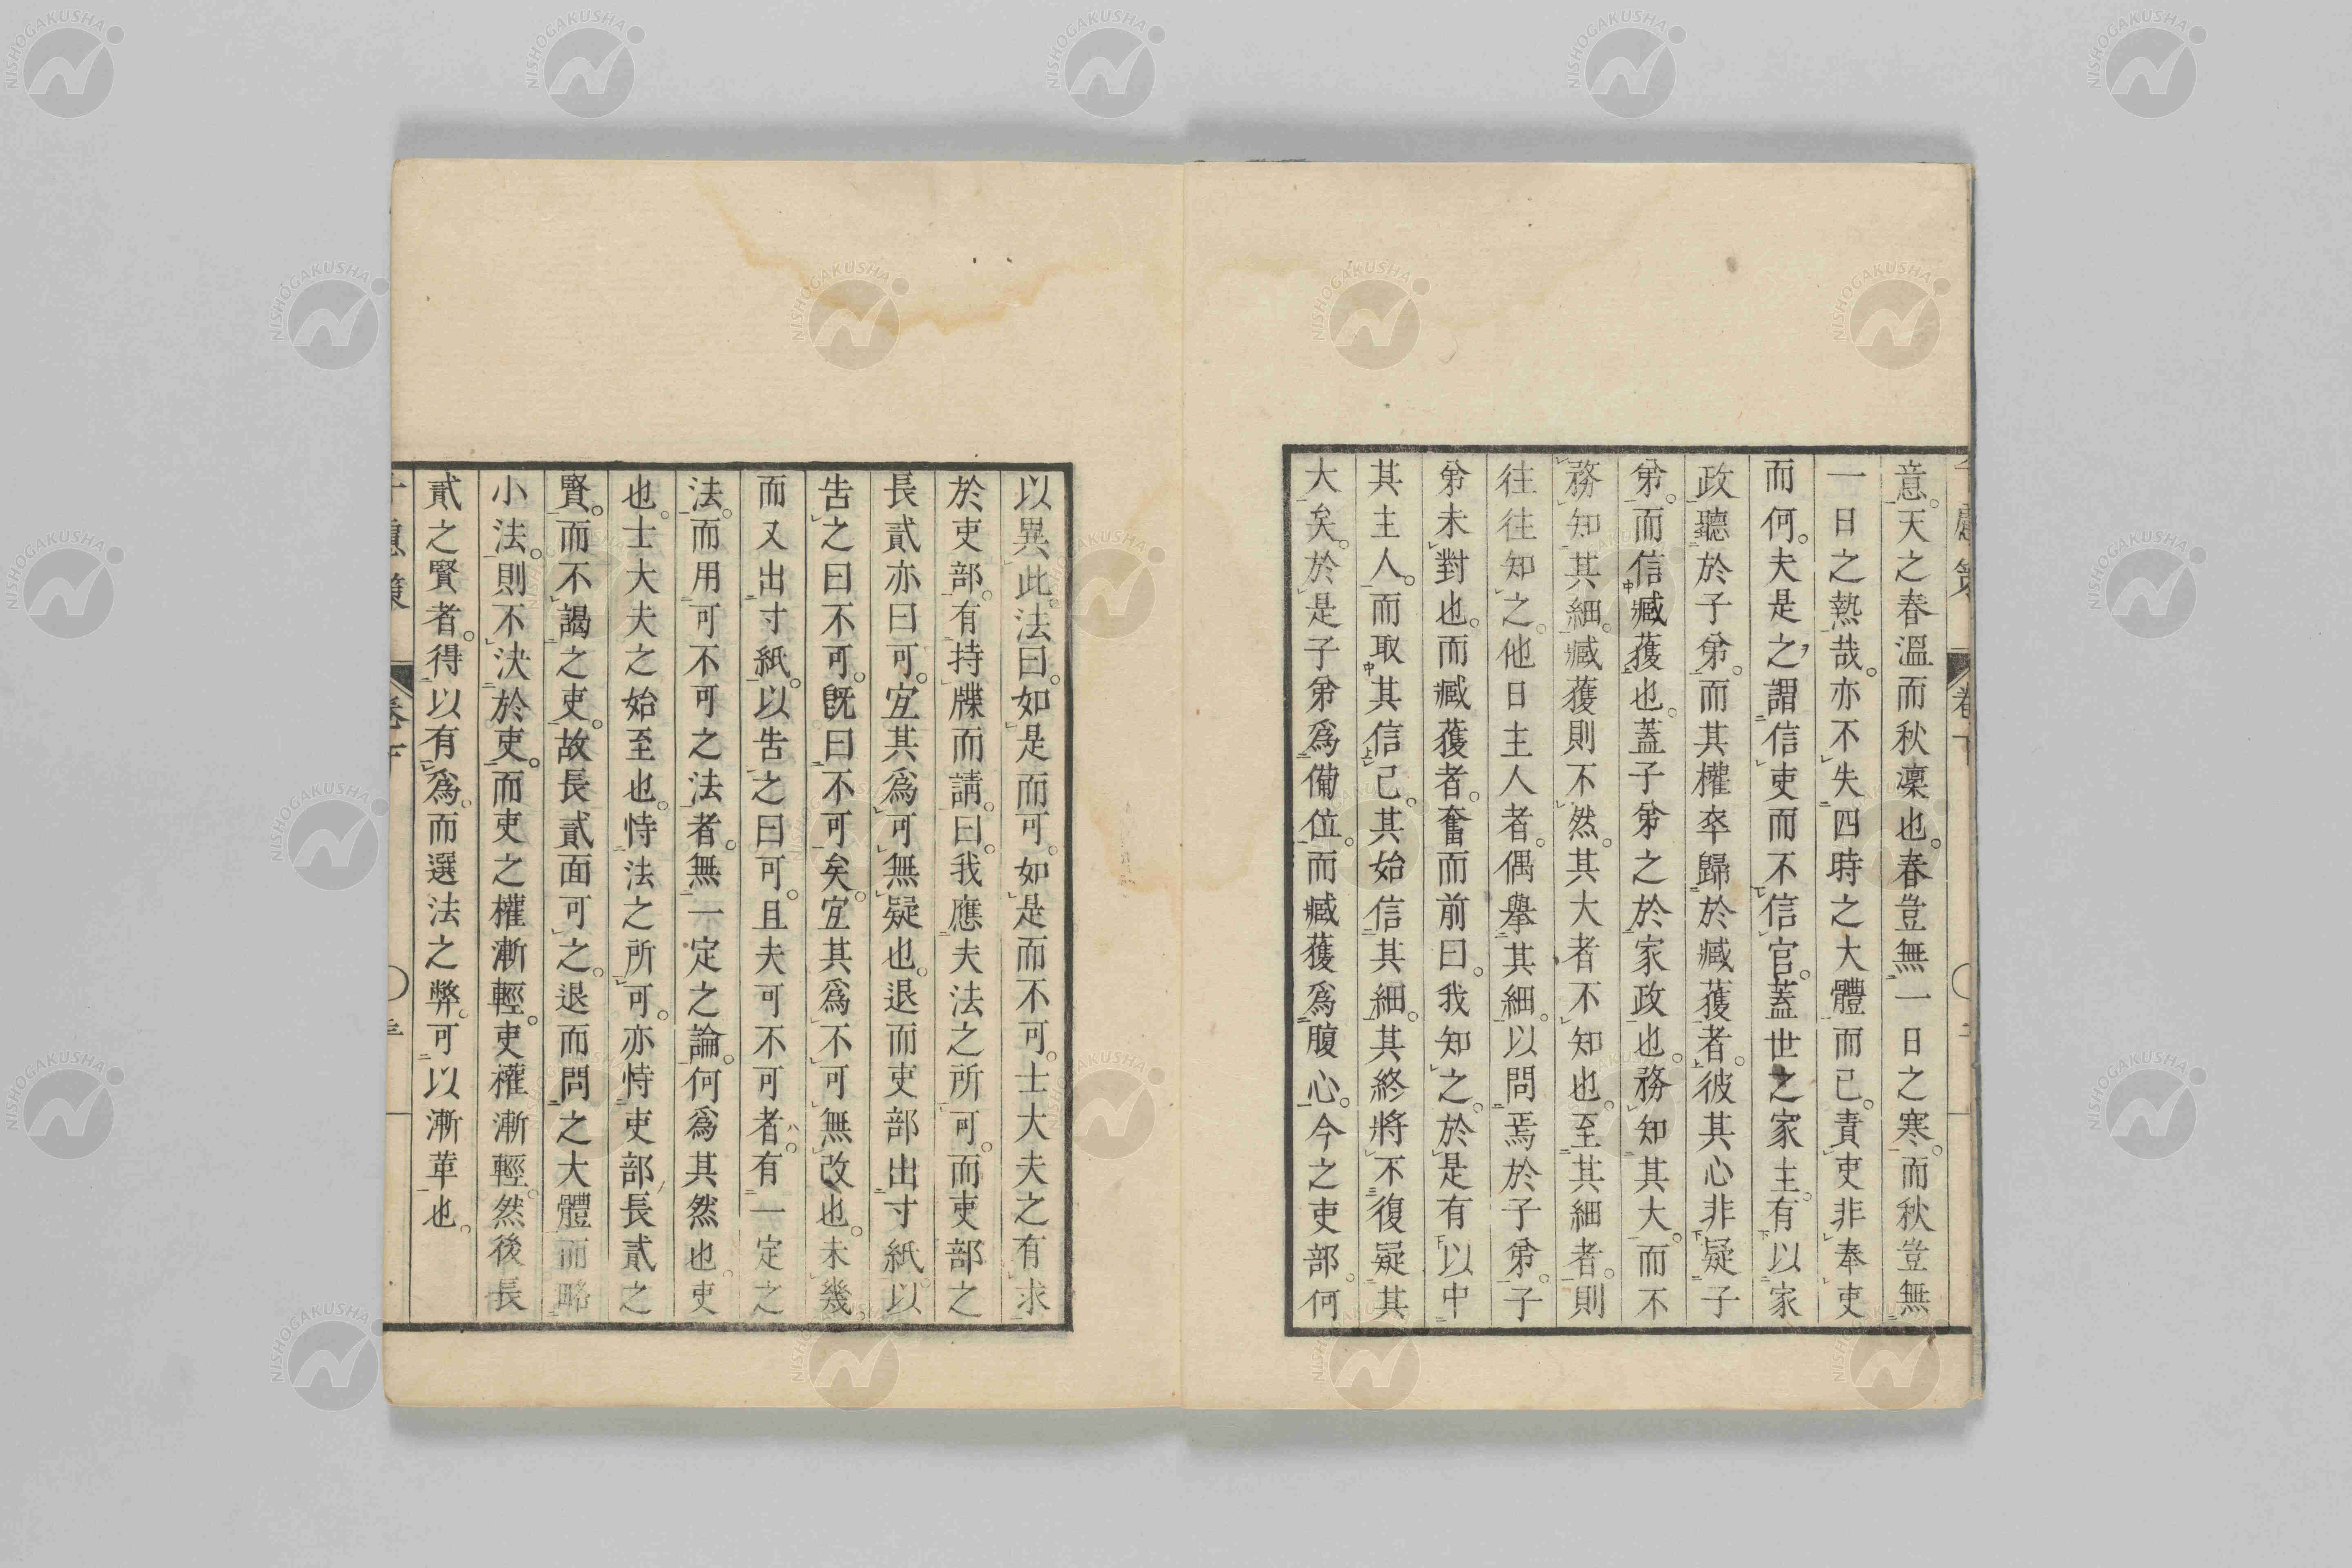 意。天之春溫而秋凜也。春豈無一日之寒。而秋豈無
一日之熱哉。亦不失四時之大體而已。責吏非奉吏
而何。夫是之謂信吏而不信官。蓋世之家主。有以家
政聽於子弟。而其權卒歸於臧獲者。彼其心非疑子
弟。而信臧獲也。蓋子弟之於家政也。務知其大。而不
務知其細。臧獲則不然。其大者不知也。至其細者。則
往往知之。他日主人者。偶舉其細。以問焉於子弟。子
弟未對也。而臧獲者。奮而前曰。我知之。於是有以中
其主人。而取其信已。其始信其細。其終將不復疑其
大矣。於是子弟爲備位。而臧獲爲腹心。今之吏部。何
以異此。法曰。如是而可。如是而不可。士大夫之有求
於吏部。有持牒而請。曰。我應夫法之所可。而吏部之
長貳亦曰可。宜其爲可無疑也。退而吏部出寸紙以
告之曰不可。既曰不可矣。宜其爲不可無改也。未幾
而又出寸紙。以告之曰可。且夫可不可者。有一定之
法。而用可不可之法者。無一定之論。何爲其然也。吏
也。士大夫之始至也。恃法之所可。亦恃吏部長貳之
賢。而不謁之吏。故長貳面可之。退而問之大體而略
小法。則不決於吏。而吏之權漸輕。吏權漸輕。然後長
貳之賢者。得以有爲。而選法之弊。可以漸革也。
慮策
卷
NISHOGAKUSHA